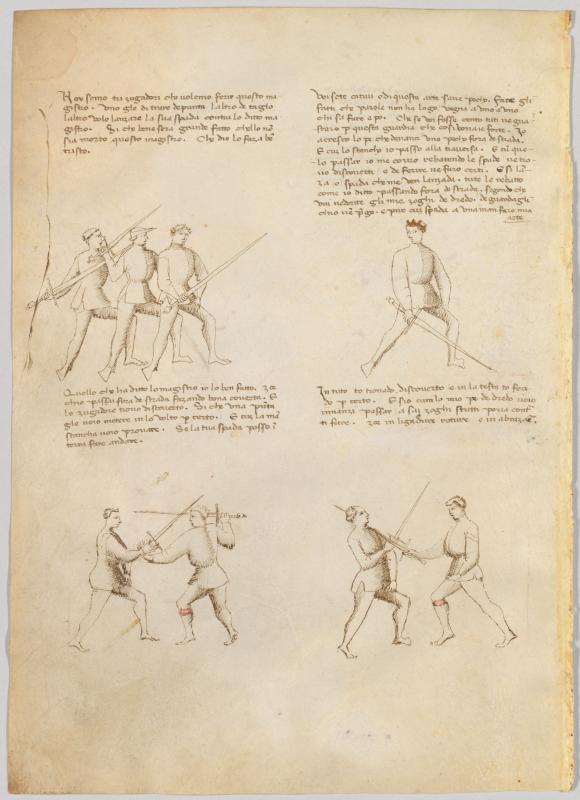 Noy semo tri zugadori che volemo ferir questo ma-
gistro. Uno gle di trare de punta laltro de taglo
laltro vole lanzare la sua spada contra lo ditto ma
gistro. Si che bene sera grande fatto chello no
sia morto questo magistro. Che dio lo faza ben
tristo.
Voi sete cativi e di questa arte save pocho. Fate gli
fatti che parole non ha logo. Vegna a uno a uno
chi sa fare e po. Che se voi fosse cento tuti ve gua-
staro per questa guardia che cosi bona e forte. Io
acresco lo pe che denanci uno pocho fora de strada.
E cum lo stancho io passo ala traversa. E in que-
lo passar io me covro rebatendo le spade ve tro-
vo discoverti e de ferire ve faro certi. E si lan-
za o spada che me ven lanzada. tute le rebatto
come io ditto passando fora di strada. segondo che
voi vedrete gli mie zoghi de dredo. de guardagli
che vi n prego. e pure cum spada a una man faro mia
arte
Quello che ha ditto lo magistro io lo ben fatto. zoe
chio passai fora de strada fazando bona coverta. E
lo zugadore trovo discoverto. Si che una punta
gle voio metere in lo volto per certo. E cum la man
stancha voio provare. Se la tua spada posso in
terra fare andare.
In tuto to trovado discoverto e in la testa to feri-
do per certo. E s io cum lo mio pe de dredo voio
innanci passare. a sai zoghi stretti poria contra
ti fare. zoe in ligadure roture e in abrazar.